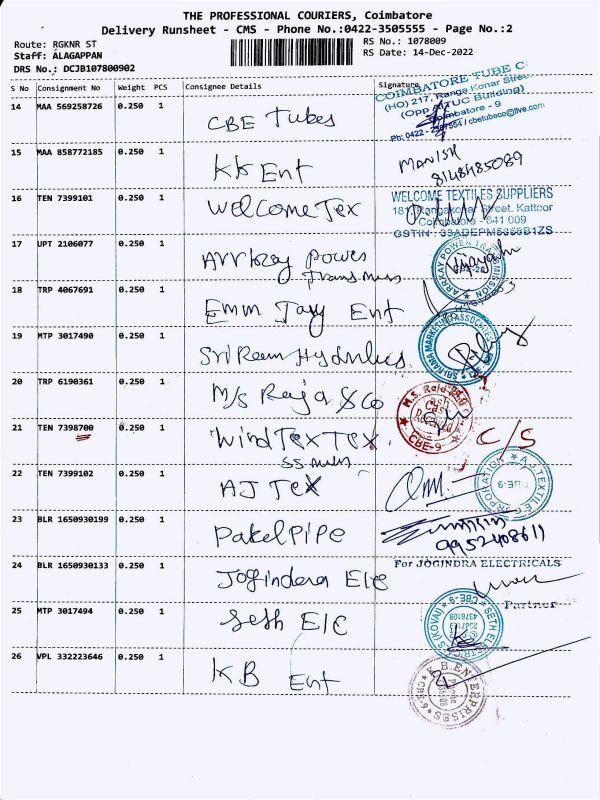 THE PROFESSIONAL COURIERS, Coimbatore
Delivery Runsheet - CMS - Phone No.:0422-3505555 - Page No.:2
Route: RGKNR ST
Staff: ALAGAPPAN
DRS No.: DCJB107800902
RS No.: 1078009
RS Date: 14-Dec-2022
S No Consignment No Weight PCS Consignee Details Signature
14 MAA 569258726 0.250 1 CBE Tubes
COIMBATORE TUBE C
(HO) 217, Ranga Konar Stree
(Opp AITUC Building)
Coimbatore - 9
/ cbetubeco@live.com
15 MAA 858772185 0.250 1 KK Ent
MANISH
8148485089
16 TEN 7399101 0.250 1 Welcome Tex
WELCOME TEXTILES SUPPLIERS
181, Rangakonar Street, Kattoor
Coimbatore - 641 009
17 UPT 2106077 0.250 1 Arrkay Power
Transmission
ARRKAY POWER TRANSMISSION
18 TRP 4067691 0.250 1 Emm Jay Ent
19 MTP 3017490 0.250 1 Sri Ram Hydraulics
20 TRP 6190361 0.250 1 M/s Raja & Co
CBE-9
21 TEN 7398700 0.250 1 Wind Tex Tex.
C/S
22 TEN 7399102 0.250 1 AJ Tex
A.J. TEXTILE CORPORATION
CBE-9
23 BLR 1650930199 0.250 1 Patel Pipe
9952408611
24 BLR 1650930133 0.250 1 Jogindera Ele
For JOGINDRA ELECTRICALS
Partner
25 MTP 3017494 0.250 1 Seth Elc
SETH ELECTRICALS (KOVAI)
CBE-9
26 VPL 332223646 0.250 1 KB Ent
K.B. ENTERPRISES